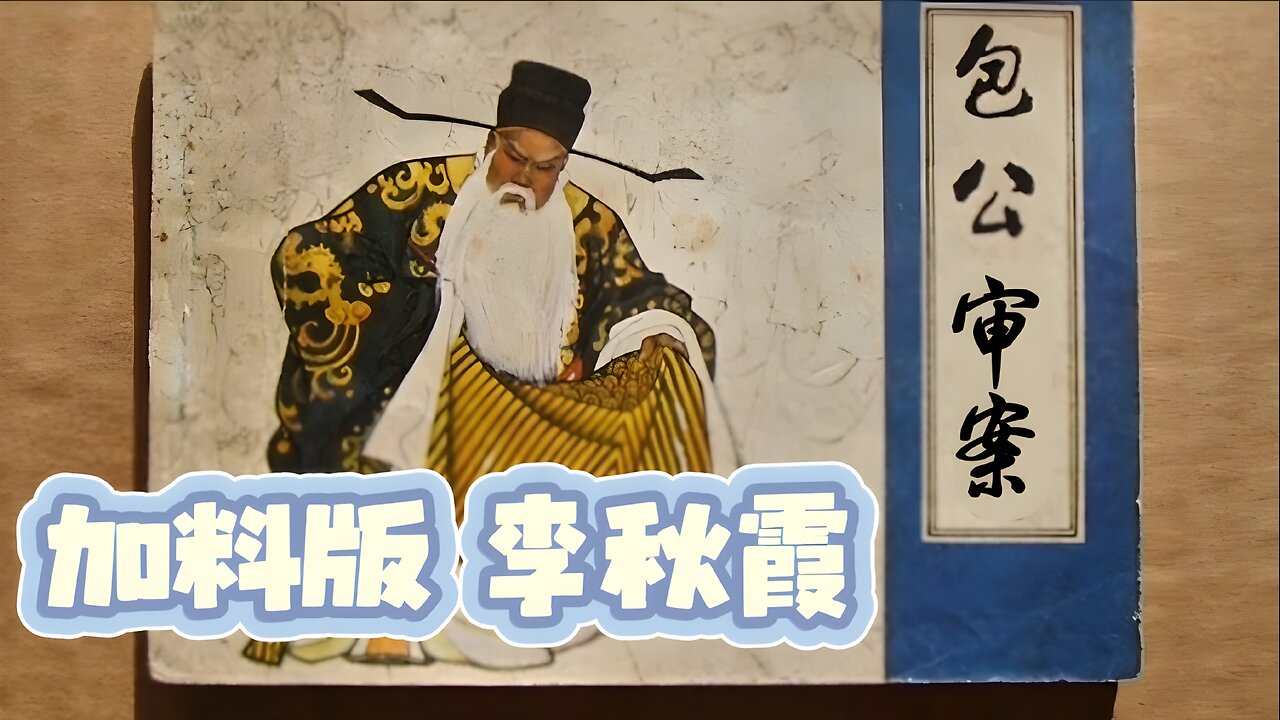 包公审案
加料版 李秋霞